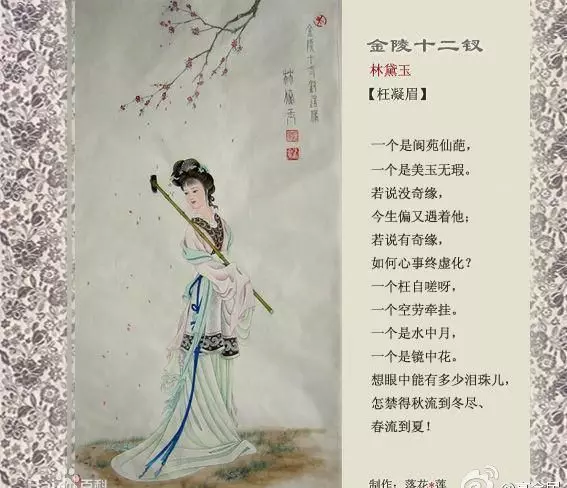 金陵十二钗
林黛玉
【枉凝眉】
一个是阆苑仙葩，
一个是美玉无瑕。
若说没奇缘，
今生偏又遇着他；
若说有奇缘，
如何心事终虚化？
一个枉自嗟呀，
一个空劳牵挂。
一个是水中月，
一个是镜中花。
想眼中能有多少泪珠儿，
怎禁得秋流到冬尽、
春流到夏！
制作：落花*莲
林黛玉
Baidu百科